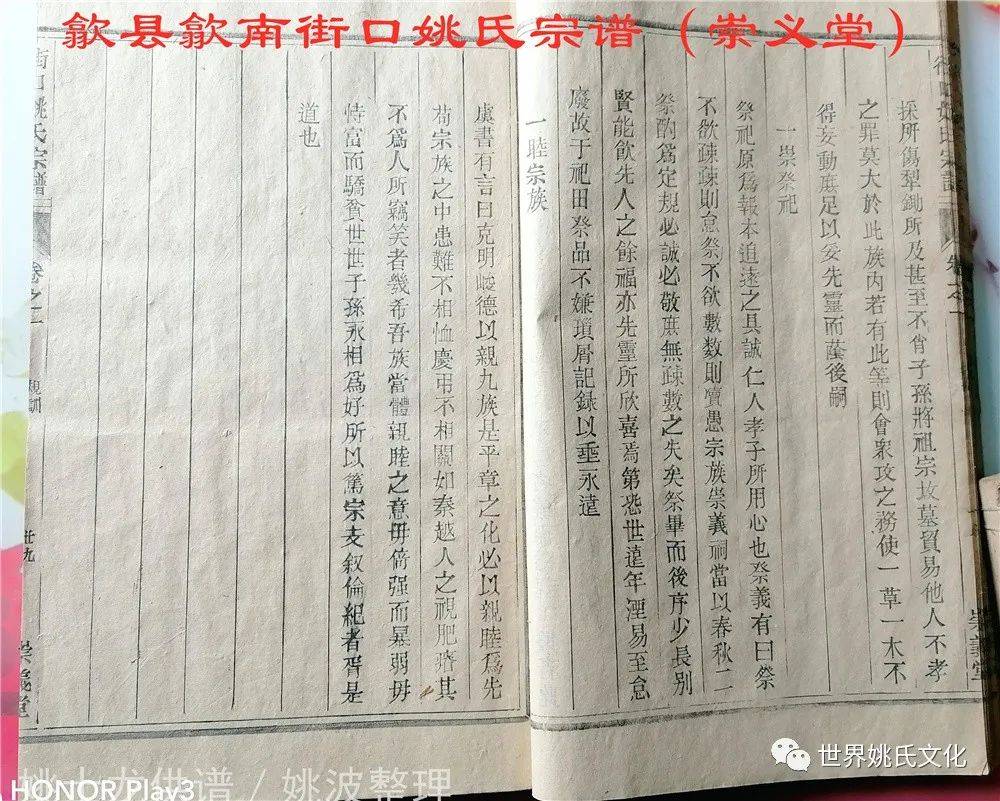 歙县歙南街口姚氏宗谱（崇义堂）
採所傷犁鋤所及甚至不肖子孫將祖宗坟墓貿易他人不孝
之罪莫大於此族内若有此等則會衆攻之務使一草一木不
得妄動庶足以妥先靈而蔭後嗣
一崇祭祀
祭祀原爲報本追遠之具誠仁人孝子所用心也祭義有曰祭
不欲疎疎則怠祭不欲數數則凟愚宗族崇義祠當以春秋二
祭酌爲定規必誠必敬庶無疎數之失矣祭畢而後序少長别
賢能飲先人之餘福亦先靈所欣喜焉第恐世遠年湮易至怠
廢故于祀田祭品不嫌瑣屑記録以垂永遠
一睦宗族
虞書有言曰克明峻德以親九族是平章之化必以親睦爲先
苟宗族之中患難不相恤慶弔不相關如秦越人之視肥瘠其
不爲人所竊笑者幾希吾族當體親睦之意毋倚强而暴弱毋
恃富而驕貧世世子孫永相爲好所以篤宗支叙倫紀者胥是
道也
街口姚氏宗譜
卷之一
規訓
廿九
崇義堂
崇義堂
世界姚氏文化
HONOR Play3
供谱 / 姚波整理